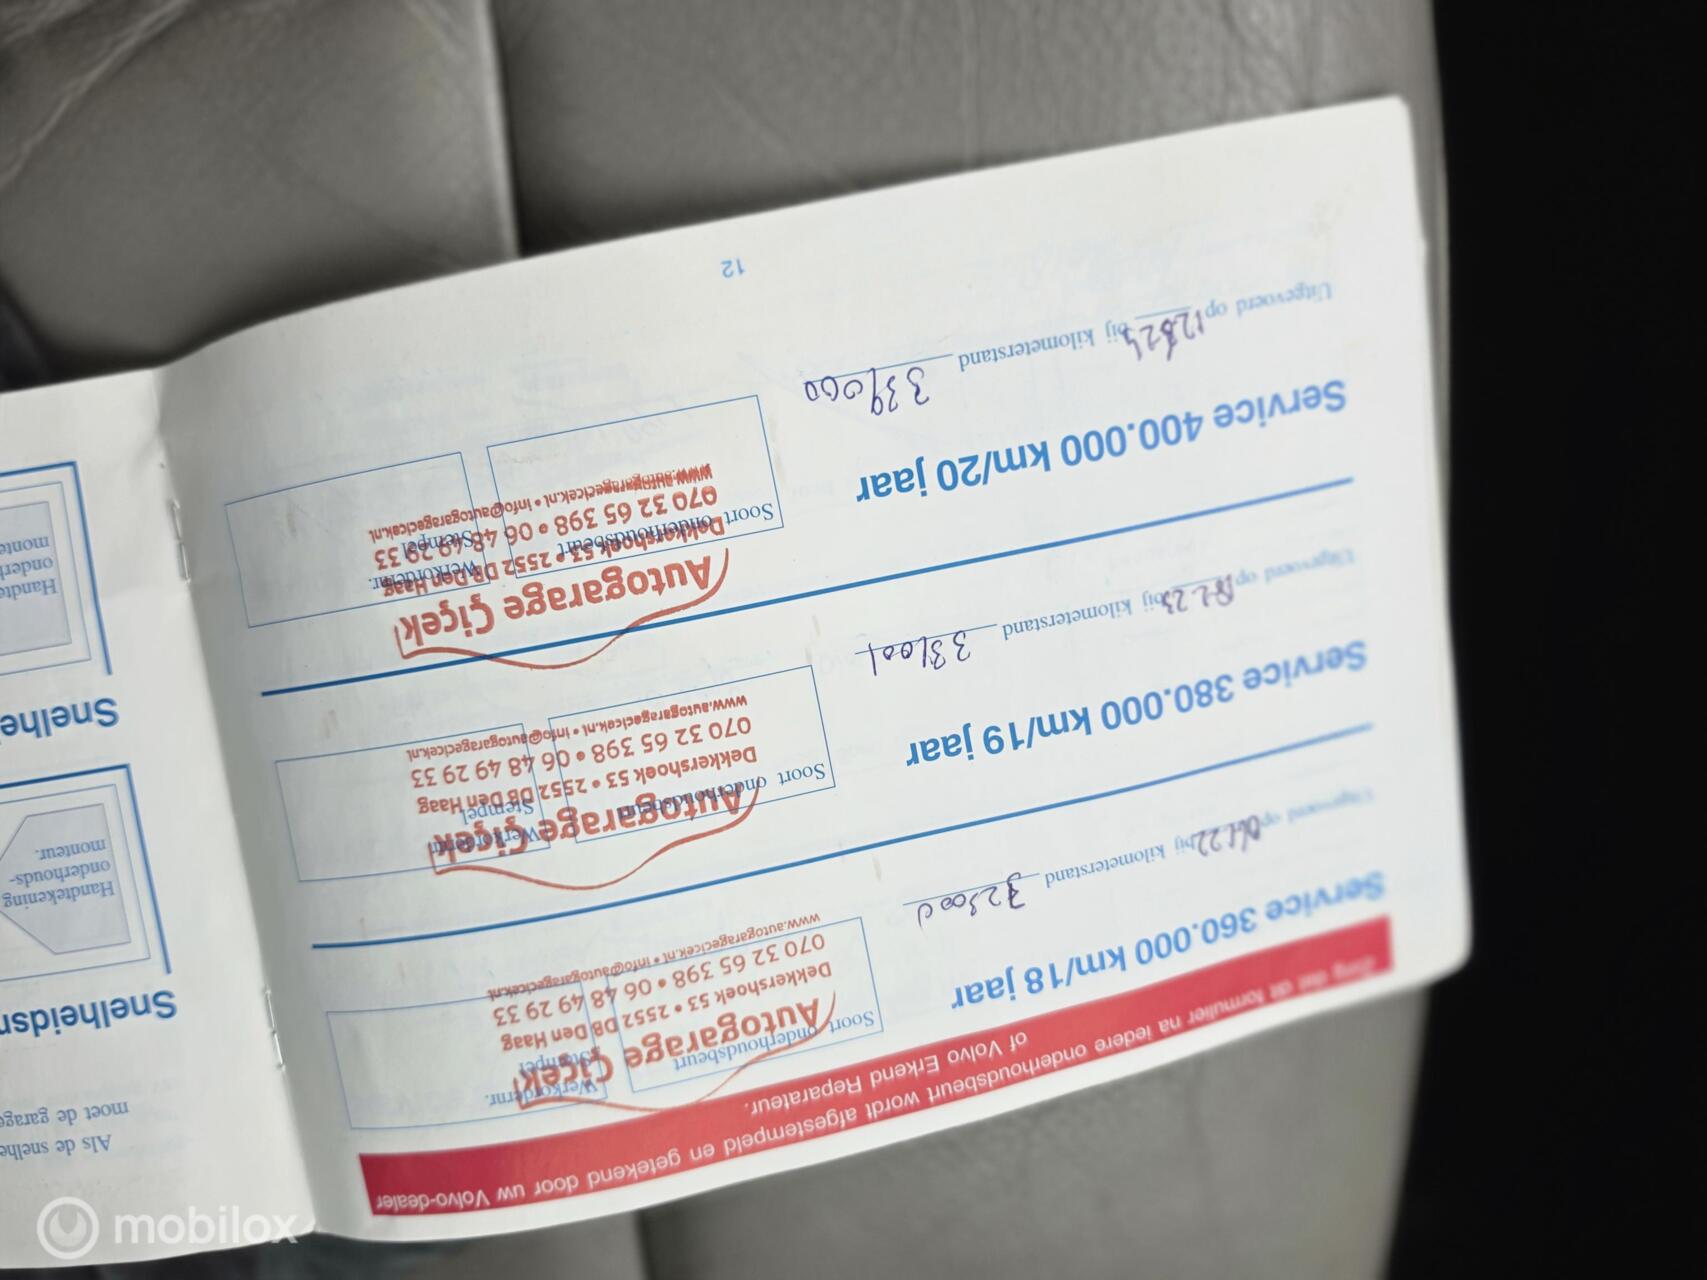 Zorg dat dit formulier na iedere onderhoudsbeurt wordt afgestempeld en getekend door uw Volvo-dealer
of Volvo Erkend Reparateur.
Service 360.000 km/18 jaar
Uitgevoerd op bij kilometerstand
Soort onderhoudsbeurt
Werkordernr.
Stempel
Autogarage Çiçek
Dekkershoek 53 • 2552 DB Den Haag
070 32 65 398 • 06 48 49 29 33
www.autogaragecicek.nl • info@autogaragecicek.nl
Service 380.000 km/19 jaar
Uitgevoerd op bij kilometerstand
331001
Soort onderhoudsbeurt
Werkordernr.
Stempel
Autogarage Çiçek
Dekkershoek 53 • 2552 DB Den Haag
070 32 65 398 • 06 48 49 29 33
www.autogaragecicek.nl • info@autogaragecicek.nl
Service 400.000 km/20 jaar
Uitgevoerd op bij kilometerstand
339000
Soort onderhoudsbeurt
Werkordernr.
Stempel
Autogarage Çiçek
Dekkershoek 53 • 2552 DB Den Haag
070 32 65 398 • 06 48 49 29 33
www.autogaragecicek.nl • info@autogaragecicek.nl
12
Als de snelhe
moet de garage
Handtekening
onderhouds-
monteur.
mobilox